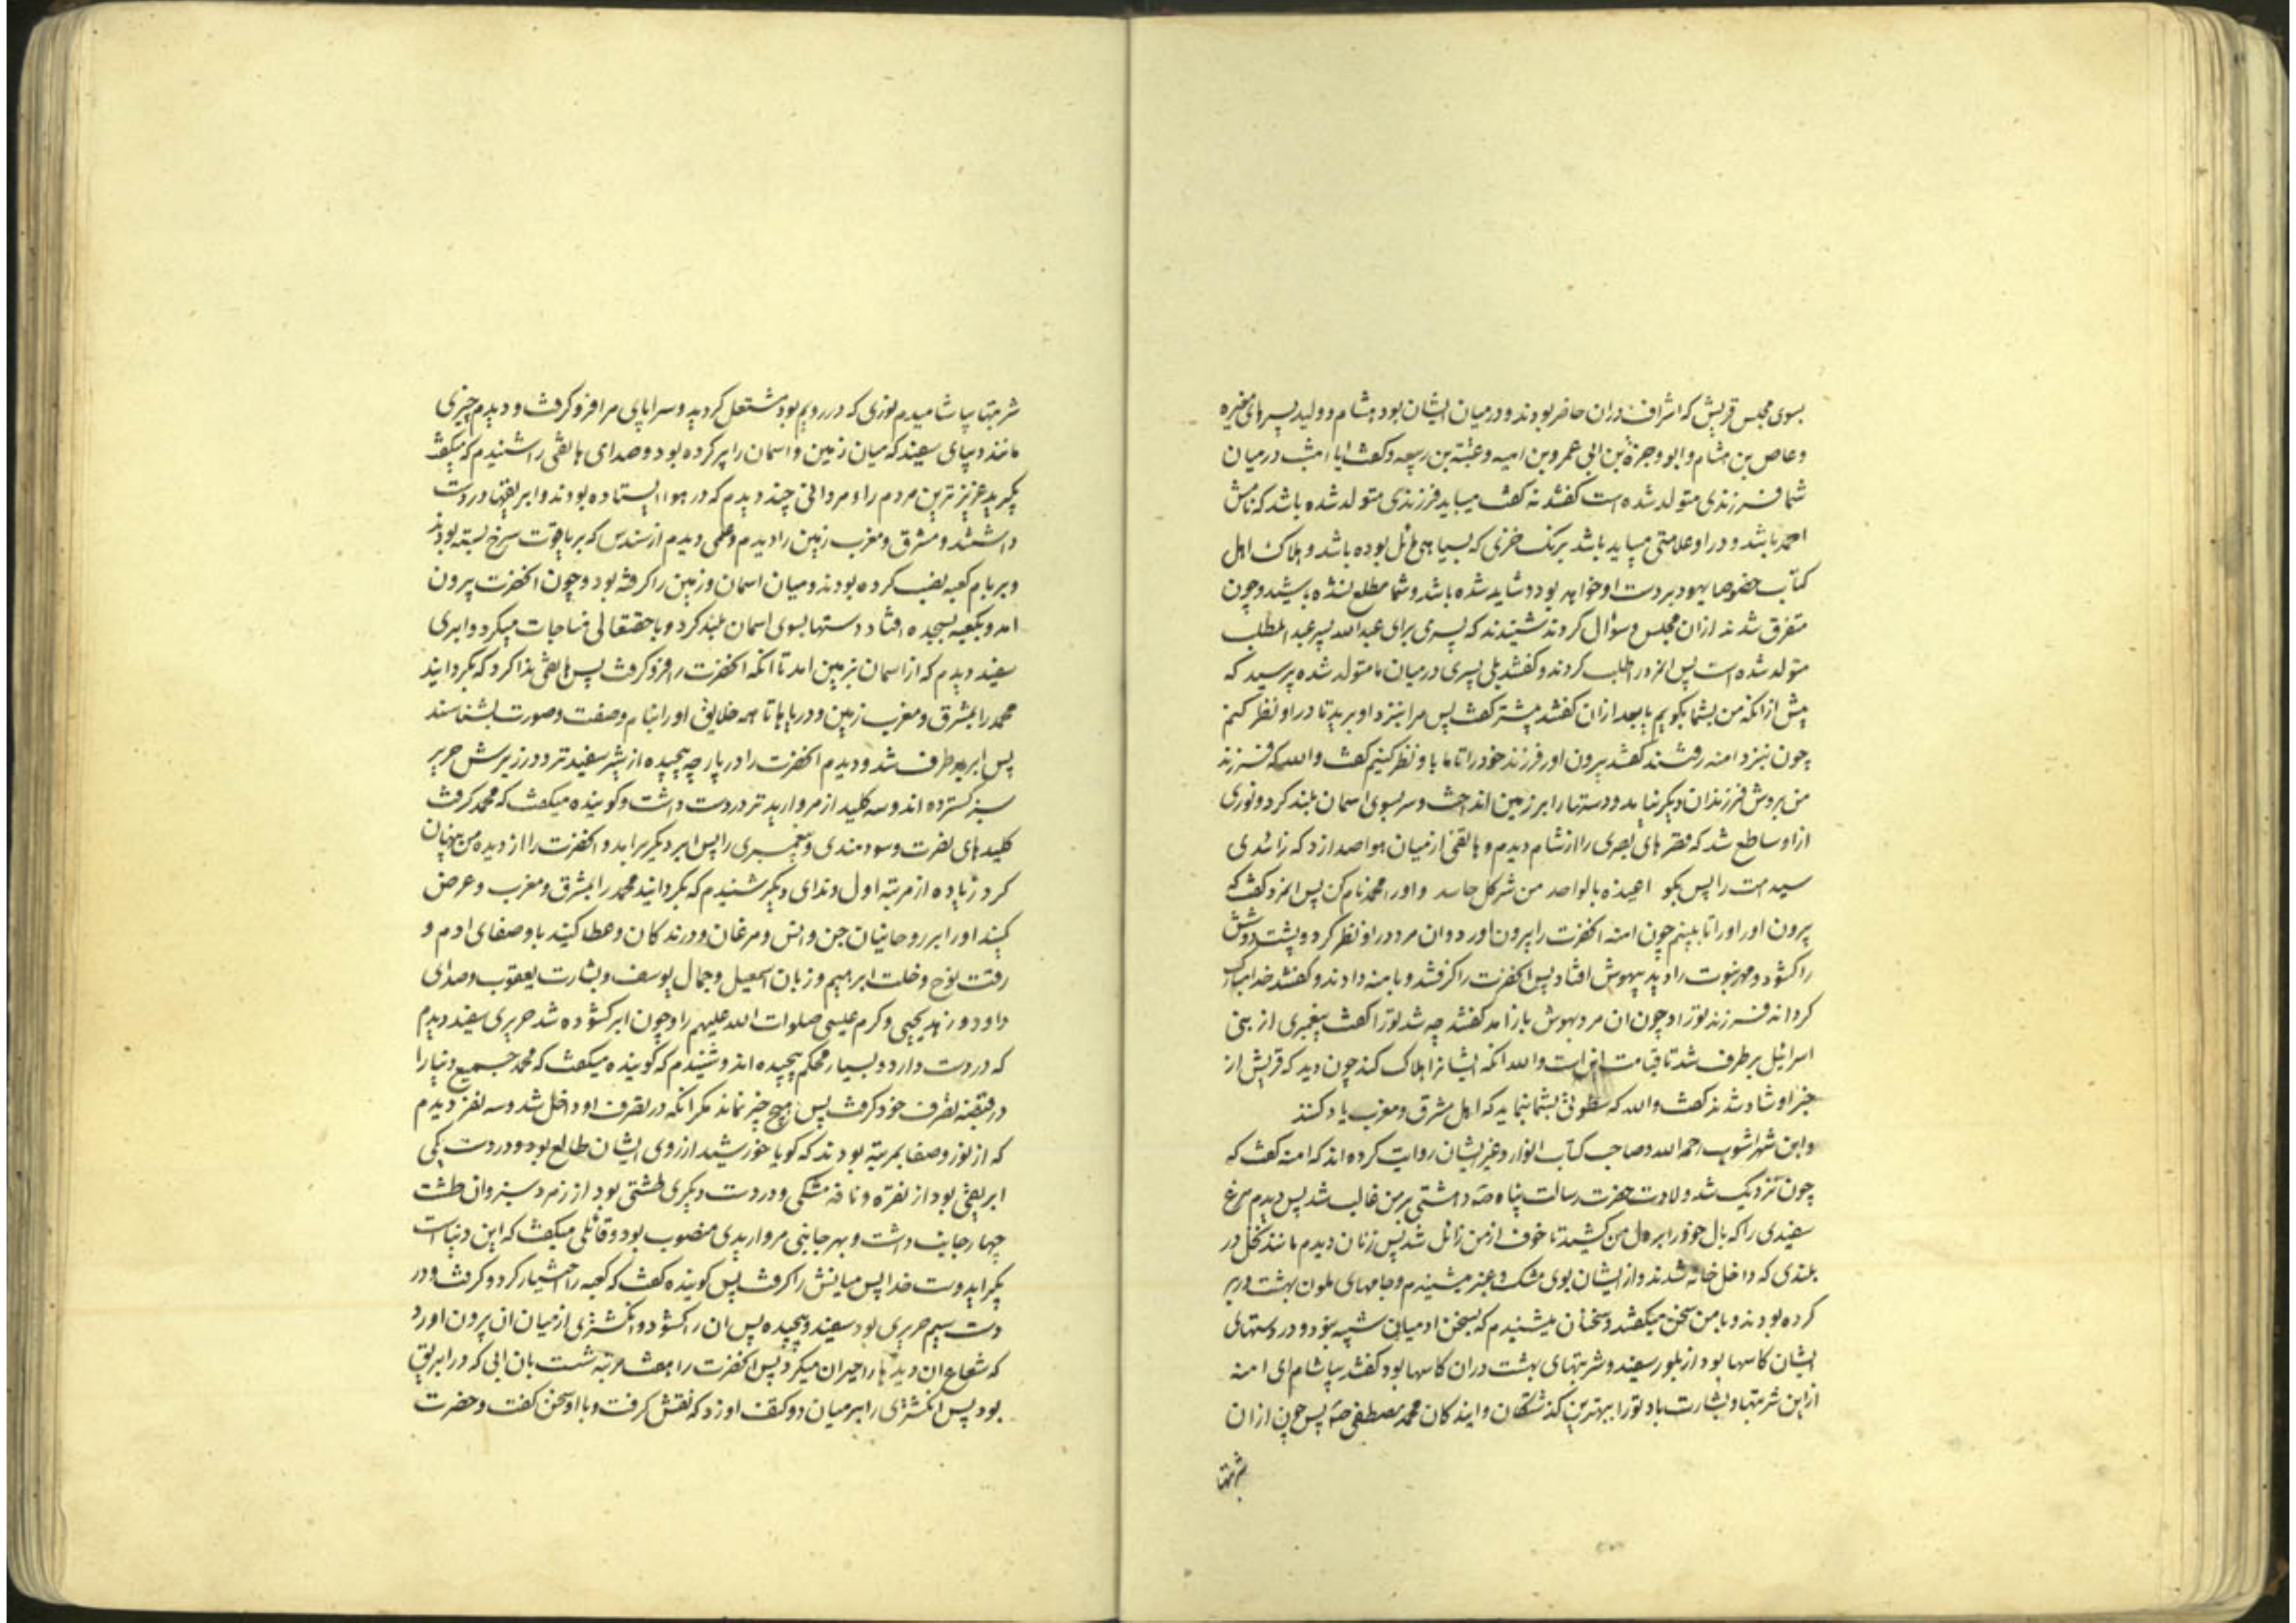 بسوی مجلس قریش که اشراف دران حاضر بودند و در میان ایشان بود هشام و ولید پسرهای مغیره
و عاص بن هشام و ابو وجزة بن ابی عمرو بن امیه و عتبة بن ربیعه و کفت ایا امشب در میان
شما فرزندی متولد شده است کفتند نه کفت میباید فرزندی متولد شده باشد که نامش
احمد باشد و در او علامتی میباید باشد برنک خزی که بسیاهی مائل بوده باشد و هلاک اهل
کتاب خصوصا یهود بر دست او خواهد بود و شاید شده باشد و شما مطلع نشده باشید و چون
متفرق شدند ازان مجلس و سؤال کردند شنیدند که پسری برای عبدالله پسر عبدالمطلب
متولد شده است پس انمرد را طلب کردند و کفتند بلی پسری در میان ما متولد شده پرسید که
پیش از انکه من بشما بکویم یا بعد ازان کفتند پیشتر کفت پس مرا بنزد او برید تا در او نظر کنم
چون بنزد امنه رفتند کفتند بیرون اور فرزند خود را تا ما باو نظر کنیم کفت والله که فرزند
من بروش فرزندان دیکر نیامد و دستها را بر زمین انداخت و سر بسوی اسمان بلند کرد و نوری
از او ساطع شد که قصرهای بصری را از شام دیدم و هاتفی از میان هوا صدا زد که زائدی
سید امت را پس بکو اعیذه بالواحد من شر کل حاسد و او را محمد نام کن پس انمرد کفت که
بیرون اور او را تا ببینم چون امنه انحضرت را بیرون اورد و ان مرد در او نظر کرد و پشت دوشش
را کشود و مهر نبوت را دید بیهوش افتاد پس انحضرت را کرفتند و بامنه دادند و کفتند خدا مبارک
کرداند فرزند تو را و چون ان مرد بهوش باز امد کفتند چه شد تو را کفت پیغمبری از بنی
اسرائیل بر طرف شد تا قیامت این است والله انکه ایشانرا هلاک کند چون دید که قریش از
خبر او شاد شدند کفت والله که سطوتی بشما نماید که اهل مشرق و مغرب یاد کنند
و ابن شهراشوب رحمه الله و صاحب کتاب انوار و غیر ایشان روایت کرده اند که امنه کفت که
چون نزدیک شد ولادت حضرت رسالت پناه صه دهشتی بر من غالب شد پس دیدم مرغ
سفیدی را که بال خود را بر دل من کشید تا خوف از من زائل شد پس زنان دیدم مانند نخل در
بلندی که داخل خانه شدند و از ایشان بوی مشک و عنبر میشنیدم و جامهای ملون بهشت در بر
کرده بودند و با من سخن میکفتند و سخنان میشنیدم که بسخن ادمیان شبیه نبود و در دستهای
ایشان کاسها بود از بلور سفید و شربتهای بهشت دران کاسها بود کفتند بیاشام ای امنه
از این شربتها و بشارت باد تو را ببهترین کذشتکان و ایندکان محمد مصطفی صه پس چون ازان
شربتها
شربتها بیاشامیدم نوری که در رویم بود مشتعل کردید و سراپای مرا فرو کرفت و دیدم چیزی
مانند دیبای سفید که میان زمین و اسمان را پر کرده بود و صدای هاتفی را شنیدم که میکفت
بکیرید عزیزترین مردم را و مردانی چند دیدم که در هوا ایستاده بودند و ابریقها در دست
داشتند و مشرق و مغرب زمین را دیدم و علمی دیدم از سندس که بر یاقوت سرخ بسته بودند
و بر بام کعبه نصب کرده بودند و میان اسمان و زمین را کرفته بود و چون انحضرت بیرون
امد رو بکعبه بسجده افتاد و دستها بسوی اسمان بلند کرد و با حقتعالی مناجات میکرد و ابری
سفید دیدم که از اسمان بزمین امد تا انکه انحضرت را فرو کرفت پس هاتفی ندا کرد که بکردانید
محمد را بمشرق و مغرب زمین و دریاها تا همه خلایق او را بنام و صفت و صورت بشناسند
پس ابر بر طرف شد و دیدم انحضرت را در پارچه پیچیده از شیر سفیدتر و در زیرش حریر
سبز کسترده اند و سه کلید از مروارید تر در دست داشت و کوینده میکفت که محمد کرفت
کلیدهای نصرت و سودمندی و پیغمبری را پس ابر دیکر بر امد و انحضرت را از دیده من پنهان
کرد زیاده از مرتبه اول و ندای دیکر شنیدم که بکردانید محمد را بمشرق و مغرب و عرض
کنید او را بر روحانیان جن و انس و مرغان و درندکان و عطا کنید باو صفای ادم و
رقت نوح و خلت ابرهیم و زبان اسمعیل و جمال یوسف و بشارت یعقوب و صدای
داود و زهد یحیی و کرم عیسی صلوات الله علیهم را و چون ابر کشوده شد حریری سفید دیدم
که در دست دارد و بسیار محکم پیچیده اند و شنیدم که کوینده میکفت که محمد جمیع دنیا را
در قبضه تصرف خود کرفت پس هیچ چیز نماند مکر انکه در تصرف او داخل شد و سه نفر دیدم
که از نور و صفا بمرتبه بودند که کویا خورشید از روی ایشان طالع بود و در دست یکی
ابریقی بود از نقره و نافه مشکی و در دست دیکری طشتی بود از زمرد سبز و ان طشت
چهار جانب داشت و بهر جانبی مرواریدی منصوب بود و قائلی میکفت که این دنیاست
بکیر ایدوست خدا پس میانش را کرفت پس کوینده کفت که کعبه را اختیار کرد و کرفت و در
دست سیم حریری بود سفید و پیچیده پس ان را کشود و انکشتری از میان ان بیرون اورد
که شعاع ان دیدها را حیران میکرد پس انحضرت را هفت مرتبه شست بان ابی که در ابریق
بود پس انکشتری را بر میان دو کتف او زد که نقش کرفت و با او سخن کفت و حضرت